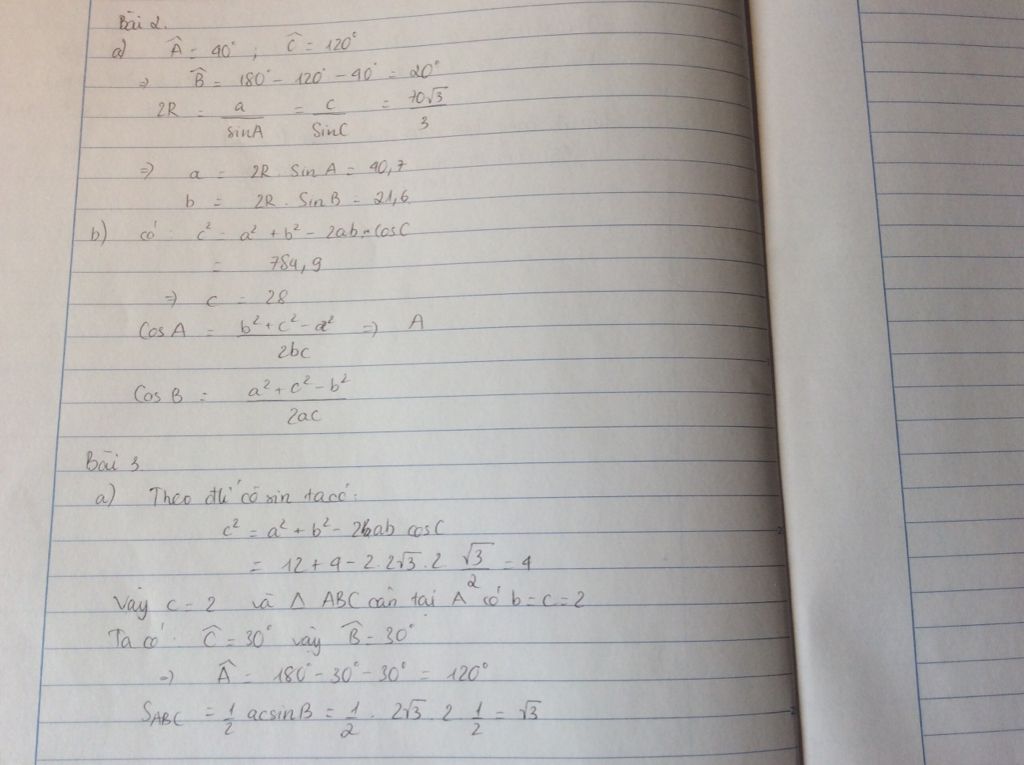 Bài 2.
a) Â = 40° ; Ĉ = 120°
⇒ B̂ = 180° - 120° - 40° = 20°
2R = a/sinA = c/SinC = 70√3/3
⇒ a = 2R . Sin A = 40,7
b = 2R . Sin B = 21,6
b) có: c² = a² + b² - 2ab . cosC
= 784,9
⇒ c = 28
Cos A = (b² + c² - a²)/2bc ⇒ A
Cos B = (a² + c² - b²)/2ac
Bài 3
a) Theo đlí cô sin ta có:
c² = a² + b² - 2ab cosC
= 12 + 4 - 2.2√3.2.√3/2 = 4
Vậy c = 2 và Δ ABC cân tại A có b = c = 2
Ta có: Ĉ = 30° vậy B̂ = 30°
⇒ Â = 180° - 30° - 30° = 120°
S_ABC = 1/2 acsinB = 1/2 . 2√3 . 2 . 1/2 = √3